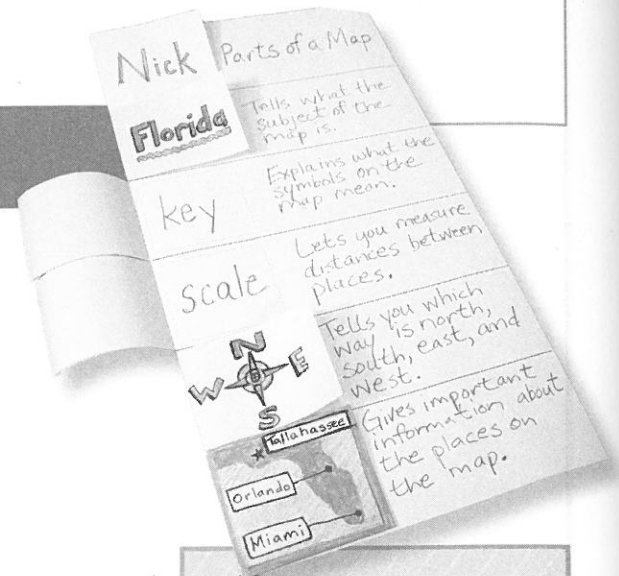 Nick
Parts of a Map
Florida
Tells what the
subject of the
map is.
key
Explains what the
symbols on the
map mean.
scale
Lets you measure
distances between
places.
N
W
E
S
Tells you which
way is north,
south, east, and
west.
Tallahassee
Orlando
Miami
Gives important
information about
the places on
the map.